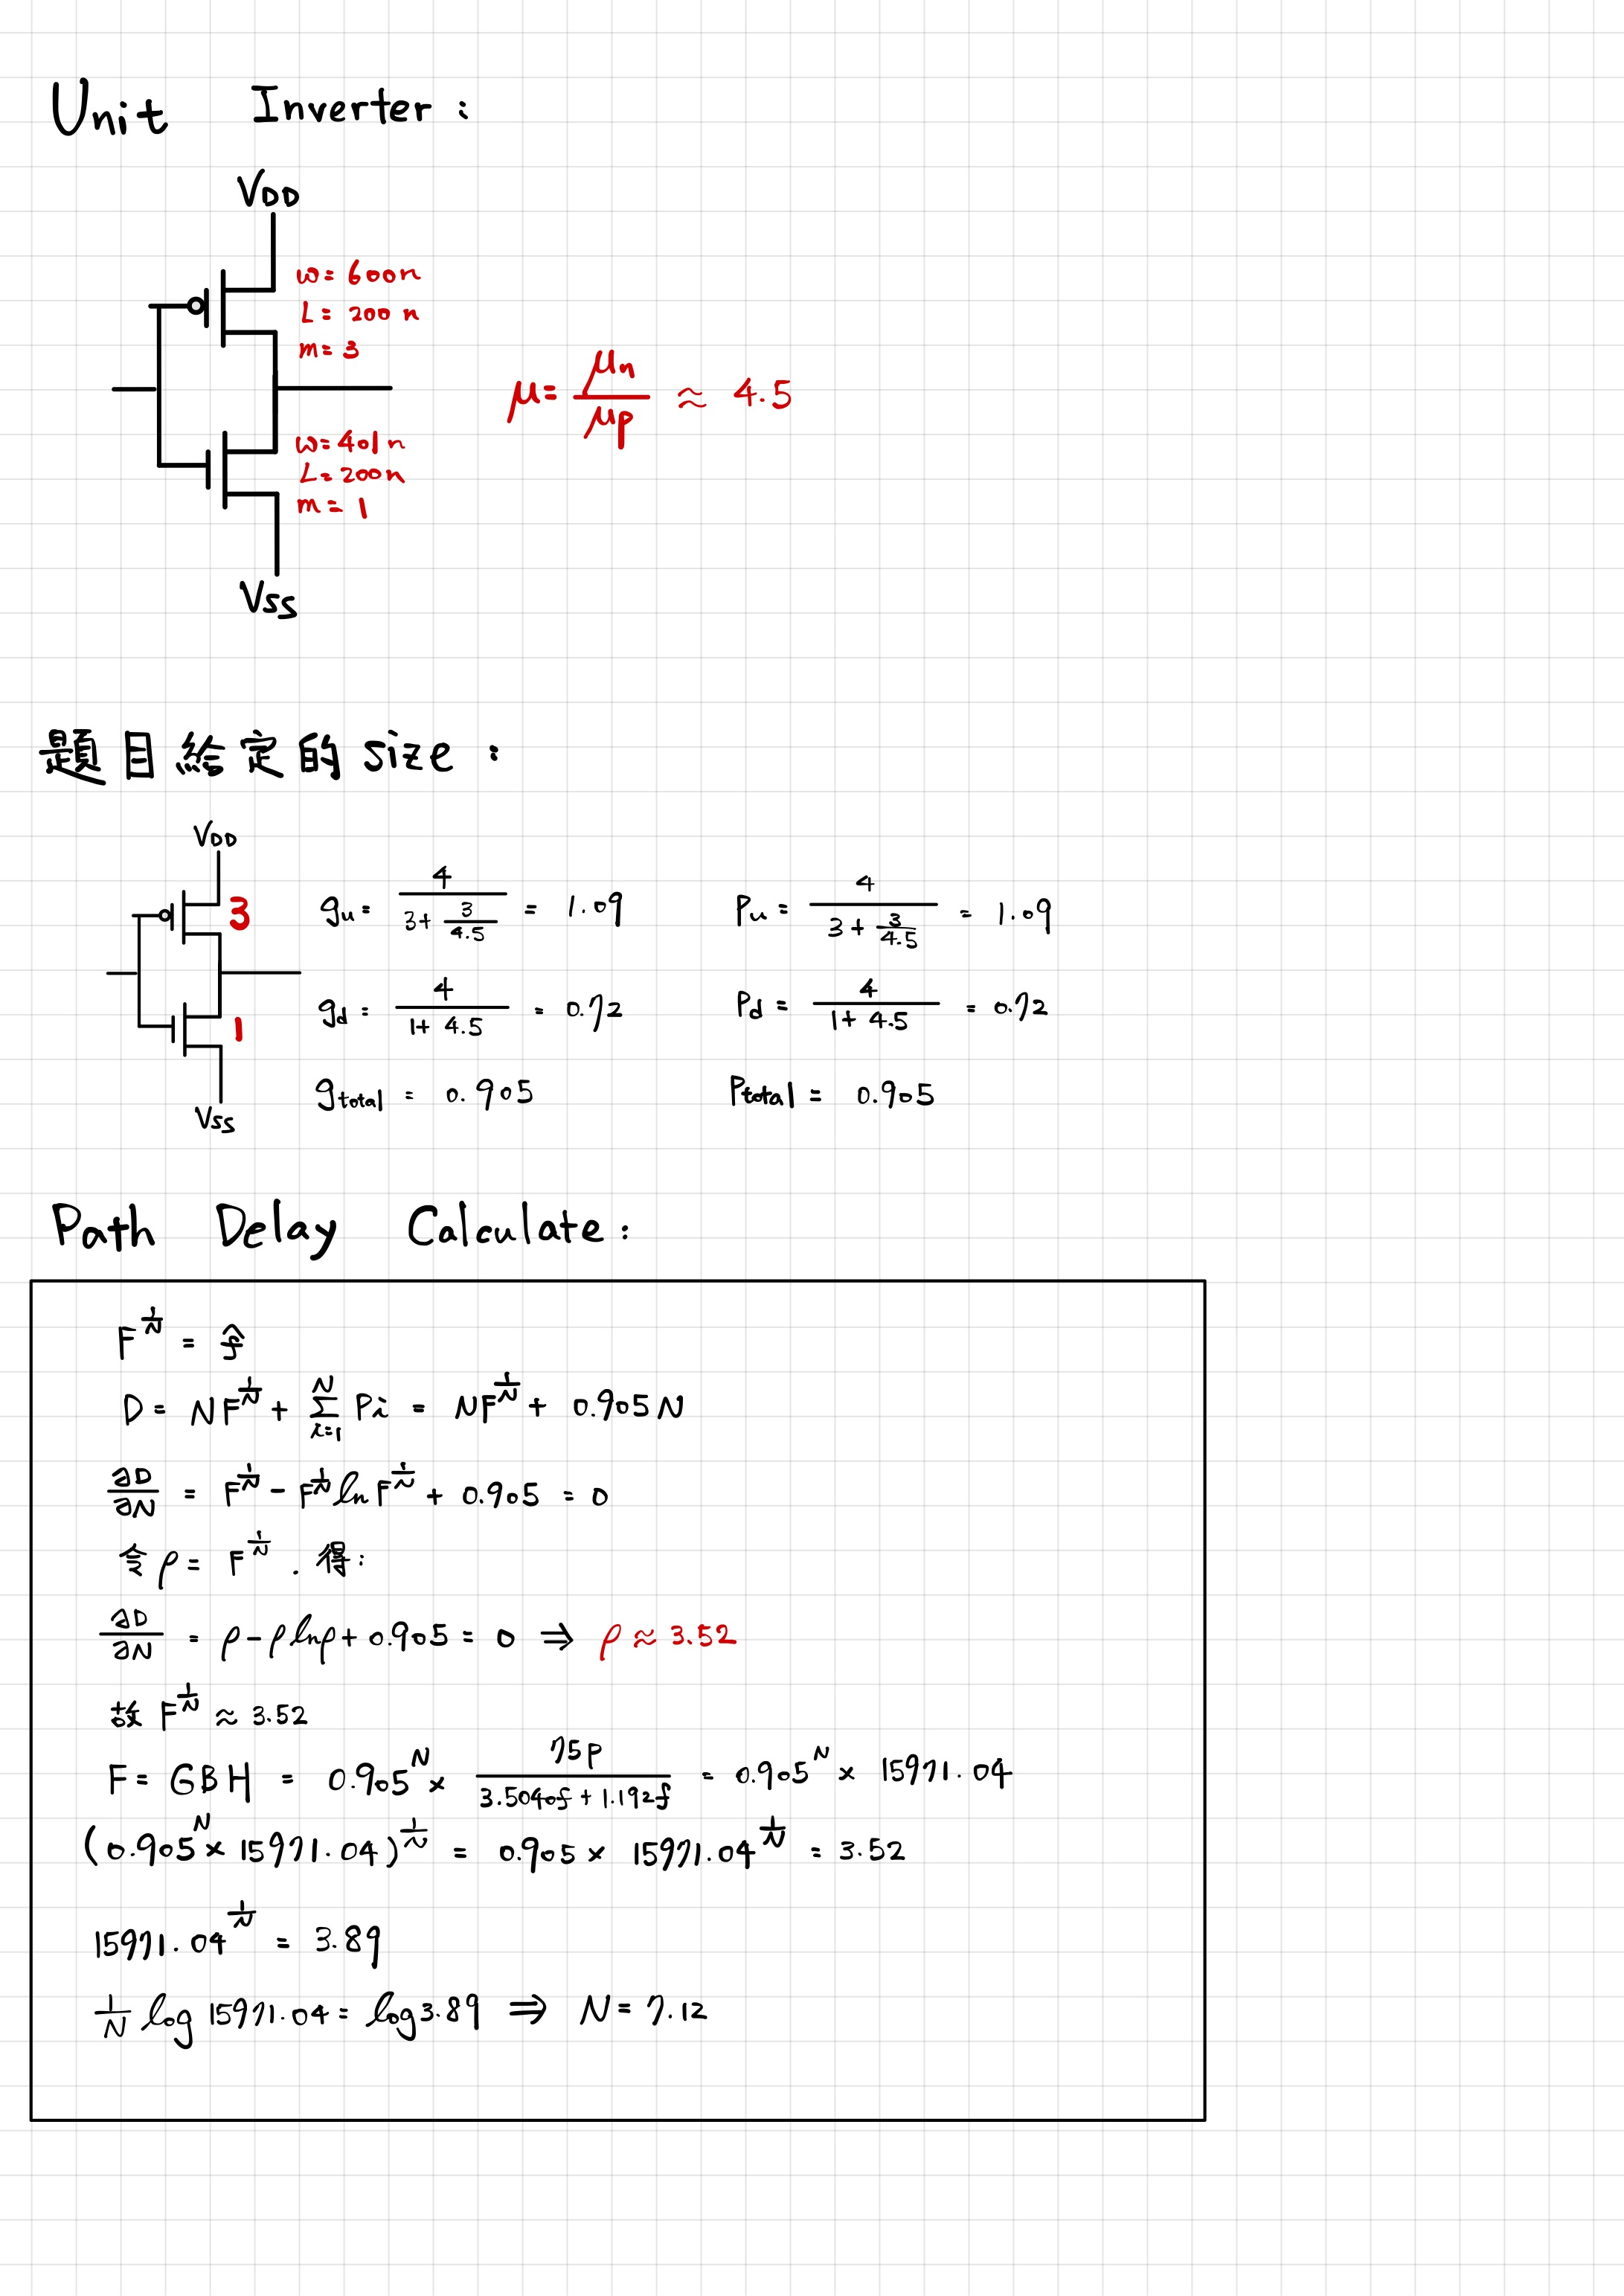 Unit Inverter:
VDD
w=600n
L=200n
m=3
μ= μn/μp ≈ 4.5
w=401n
L=200n
m=1
Vss
題目給定的 size:
VDD
3
gu= 4/(3+3/4.5) = 1.09
Pu= 4/(3+3/4.5) = 1.09
gd= 4/(1+4.5) = 0.72
Pd= 4/(1+4.5) = 0.72
1
gtotal = 0.905
Ptotal = 0.905
Vss
Path Delay Calculate:
F^(1/N) = f̂
D= NF^(1/N) + Σ_{i=1}^{N} Pi = NF^(1/N) + 0.905N
∂D/∂N = F^(1/N) - F^(1/N) ln F^(1/N) + 0.905 = 0
令 ρ= F^(1/N) . 得:
∂D/∂N = ρ-ρlnρ+0.905 = 0 ⇒ ρ≈3.52
故 F^(1/N) ≈ 3.52
F= GBH = 0.905^N × 75p/(3.5040f+1.192f) = 0.905^N × 15971.04
(0.905^N × 15971.04)^(1/N) = 0.905 × 15971.04^(1/N) = 3.52
15971.04^(1/N) = 3.89
1/N log 15971.04 = log 3.89 ⇒ N= 7.12